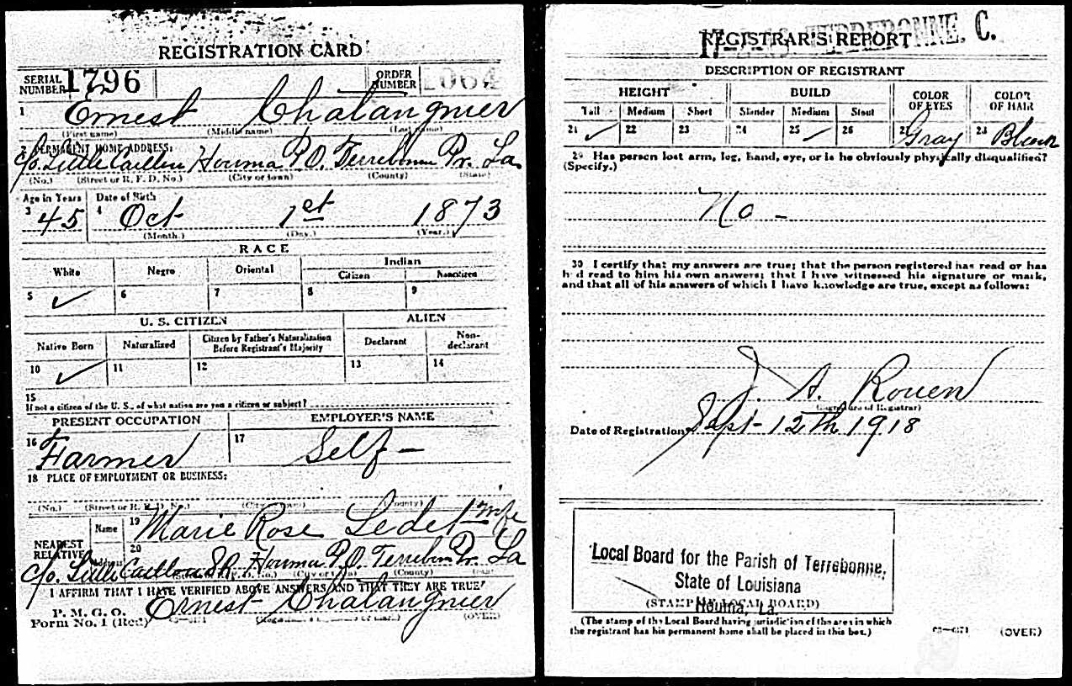 REGISTRATION CARD
SERIAL NUMBER 1796 ORDER NUMBER 1064
1 Ernest Chalangnier
(First name) (Middle name) (Last name)
2 PERMANENT HOME ADDRESS:
c/o. Little Caillou Houma P.O. Terrebonn Pr. La
(No.) (Street or R. F. D. No.) (City or town) (County) (State)
Age in Years Date of Birth
3 45 4 Oct 1st 1873
(Month.) (Day.) (Year.)
RACE
White Negro Oriental Indian
Citizen Noncitizen
5 ✓ 6 7 8 9
U. S. CITIZEN ALIEN
Native Born Naturalized Citizen by Father's Naturalization Before Registrant's Majority Declarant Non-declarant
10 ✓ 11 12 13 14
15
If not a citizen of the U. S., of what nation are you a citizen or subject?
PRESENT OCCUPATION EMPLOYER'S NAME
16 Farmer 17 Self -
18 PLACE OF EMPLOYMENT OR BUSINESS:
(No.) (Street or R. F. D. No.) (City or town) (County)
NEAREST RELATIVE Name 19 Marie Rose Ledet wife
Address 20 c/o. Little Caillou Houma P.O. Terrebon Pr. La
I AFFIRM THAT I HAVE VERIFIED ABOVE ANSWERS AND THAT THEY ARE TRUE
P. M. G. O.
Form No. 1 (Red) Ernest Chalangnier
(OVER)
TERREBONNE, C.
REGISTRAR'S REPORT
DESCRIPTION OF REGISTRANT
HEIGHT BUILD COLOR OF EYES COLOR OF HAIR
Tall Medium Short Slender Medium Stout
21 ✓ 22 23 24 25 ✓ 26 27 Gray 28
29 Has person lost arm, leg, hand, eye, or is he obviously physically disqualified?
(Specify.)
No -
30 I certify that my answers are true; that the person registered has read or has
had read to him his own answers; that I have witnessed his signature or mark,
and that all of his answers of which I have knowledge are true, except as follows:
J. A. Rouen
(Signature of Registrar)
Date of Registration Sept - 12th 1918
Local Board for the Parish of Terrebonne,
State of Louisiana
Houma, La.
(STAMP OF LOCAL BOARD)
(The stamp of the Local Board having jurisdiction of the area in which
the registrant has his permanent home shall be placed in this box.)
(OVER)